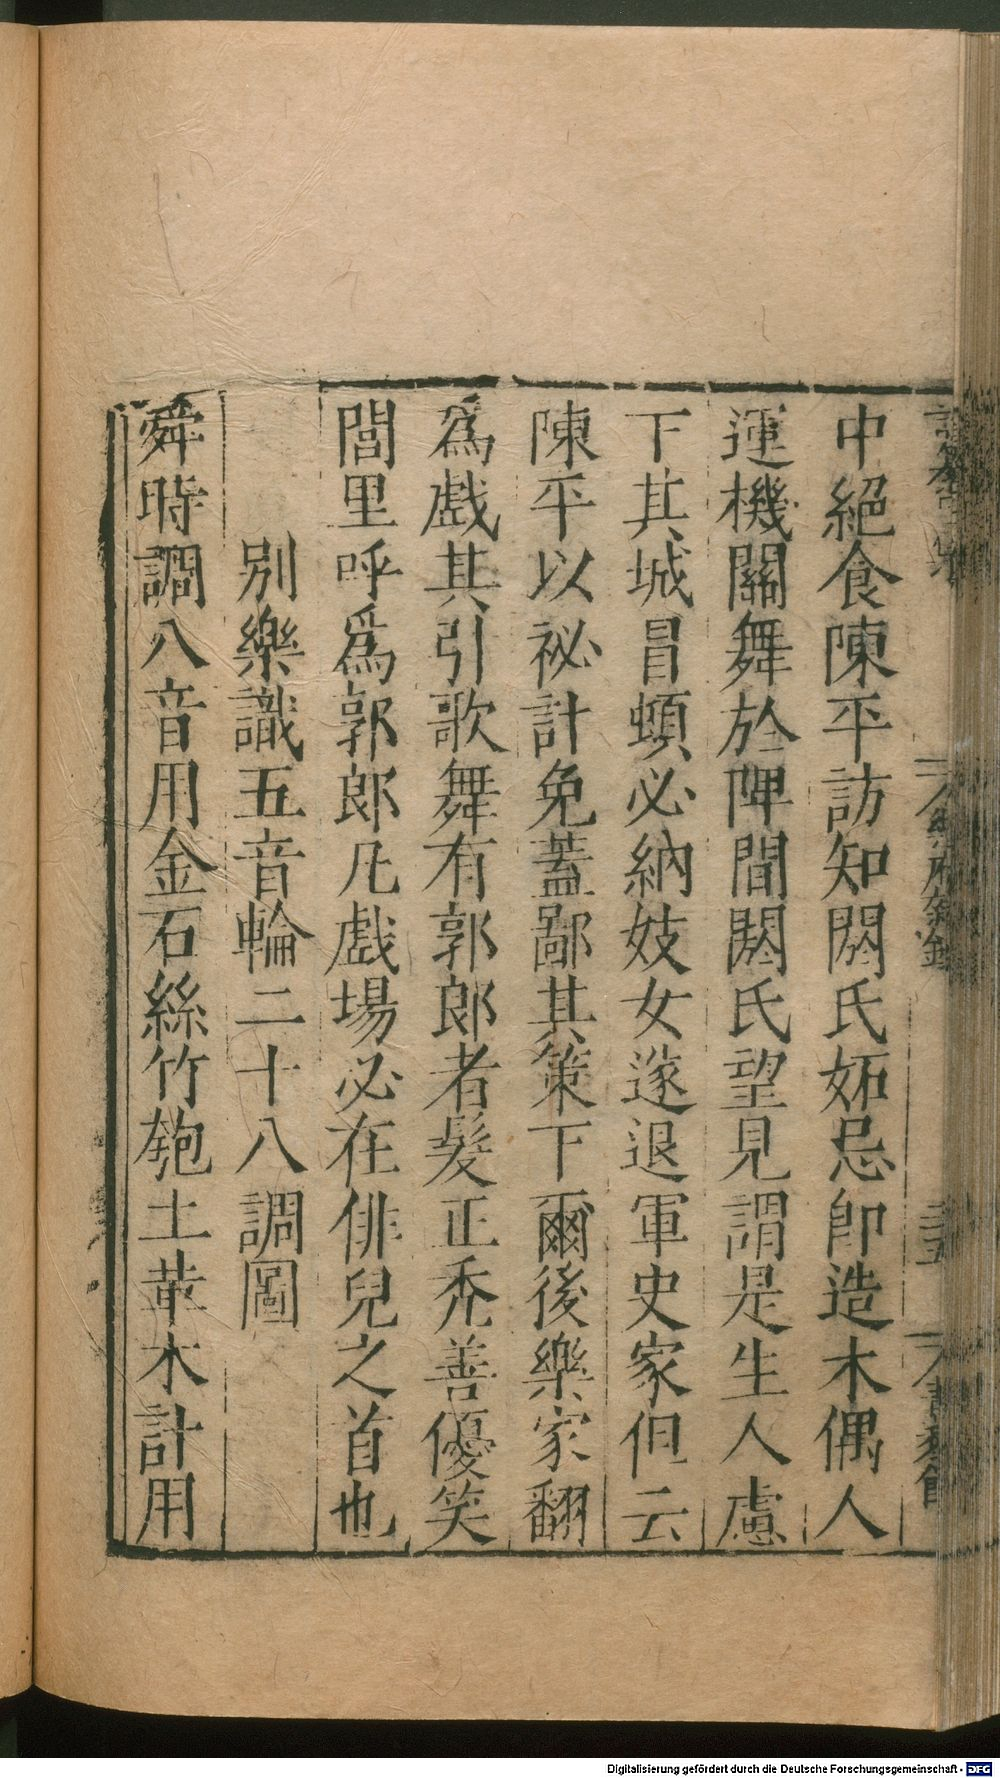 中絕食陳平訪知閼氏妬忌卽造木偶人
運機關舞於陴間閼氏望見謂是生人慮
下其城冒頓必納妓女遂退軍史家但云
陳平以祕計免蓋鄙其策下爾後樂家翻
爲戲其引歌舞有郭郎者髮正禿善優笑
閭里呼爲郭郎凡戲場必在俳兒之首也
別樂識五音輪二十八調圖
舜時調八音用金石絲竹匏土革木計用
Digitalisierung gefördert durch die Deutsche Forschungsgemeinschaft - DFG